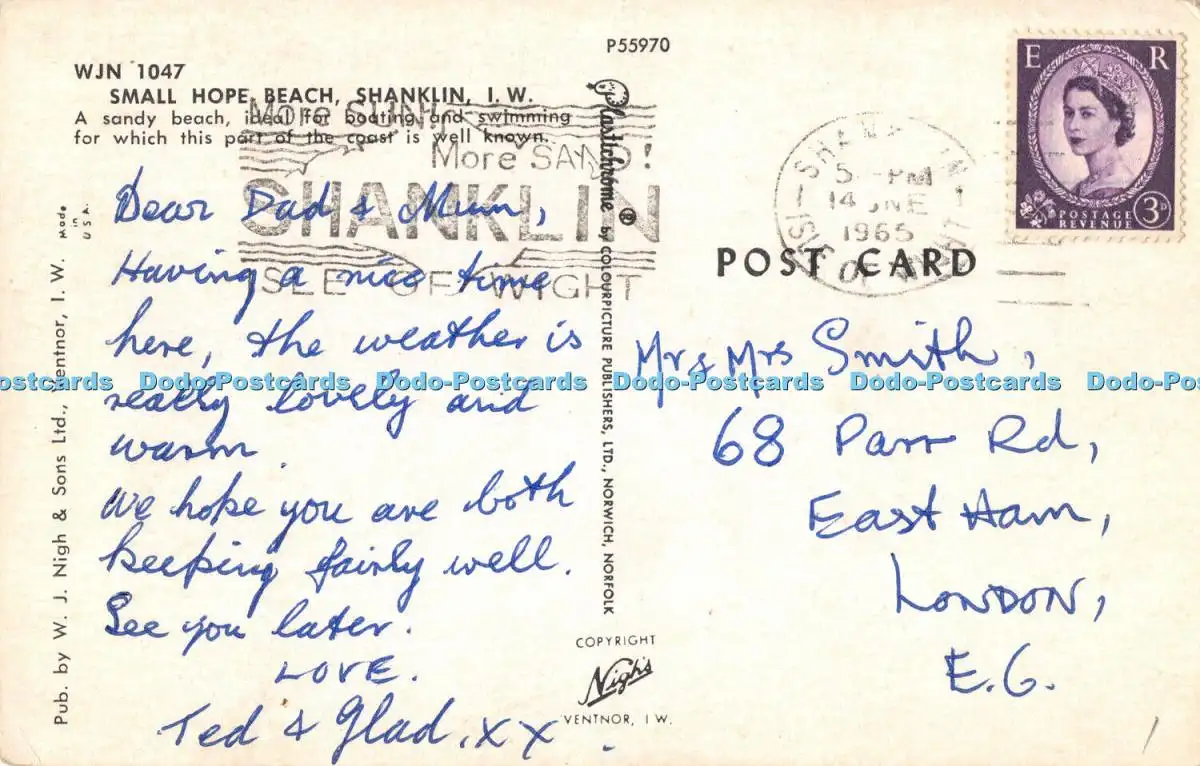 P55970
WJN 1047
SMALL HOPE BEACH, SHANKLIN, I.W.
A sandy beach, ideal for boating and swimming
for which this part of the coast is well known.
More SUN!
More SAND!
SHANKLIN
ISLE OF WIGHT
Dear Dad & Mum,
Having a nice time
here, the weather is
really lovely and
warm.
We hope you are both
keeping fairly well.
See you later.
LOVE.
Ted & Glad. x x
Pub. by W. J. Nigh & Sons Ltd., Ventnor, I. W.
Made
in
U.S.A.
Plastichrome ® by COLOURPICTURE PUBLISHERS, LTD., NORWICH, NORFOLK
COPYRIGHT
Nigh's
VENTNOR, I.W.
POST CARD
SHANKLIN
5 PM
14 JNE
1965
ISLE OF WIGHT
E R
POSTAGE
REVENUE
3D
Mr & Mrs Smith,
68 Parr Rd,
East Ham,
LONDON,
E.6.
Dodo-Postcards Dodo-Postcards Dodo-Postcards Dodo-Postcards Dodo-Postcards